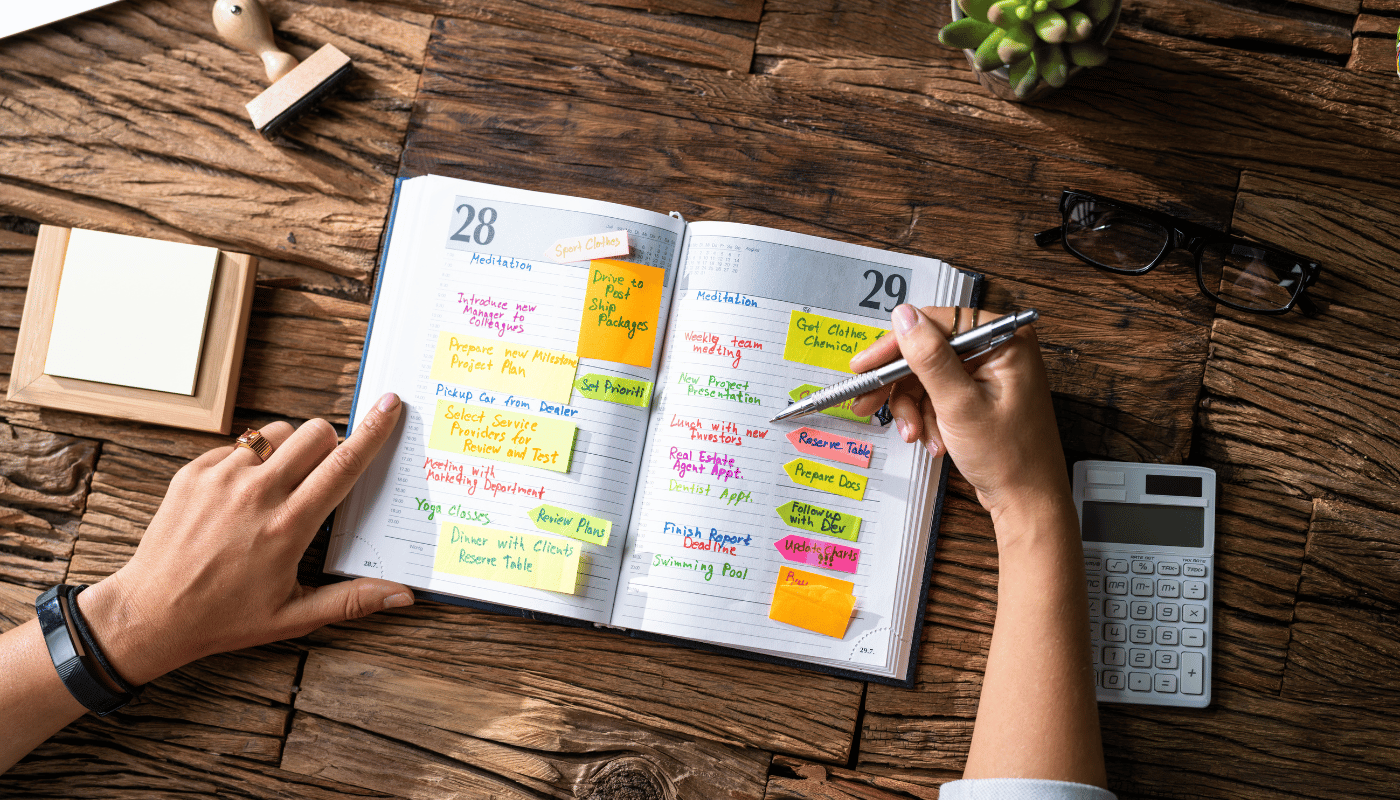 28
Sport Clothes
Meditation
Drive to
Post
Ship
Packages
Introduce new
Manager to
Colleagues
Prepare new Milestone
Project Plan
Set Prioriti
Pickup Car from Dealer
Select Service
Providers for
Review and Test
Meeting with
Marketing Department
Yoga Classes
Review Plans
Dinner with Clients
Reserve Table
28.7.
29
Meditation
Get Clothes f
Chemical
Weekly team
meeting
New Project
Presentation
Lunch with new
Investors
Reserve Table
Real Estate
Agent Appt.
Prepare Docs
Dentist Appt.
Followup
with Dev
Finish Report
Deadline
Update Charts
!!!
Swimming Pool
29.7.